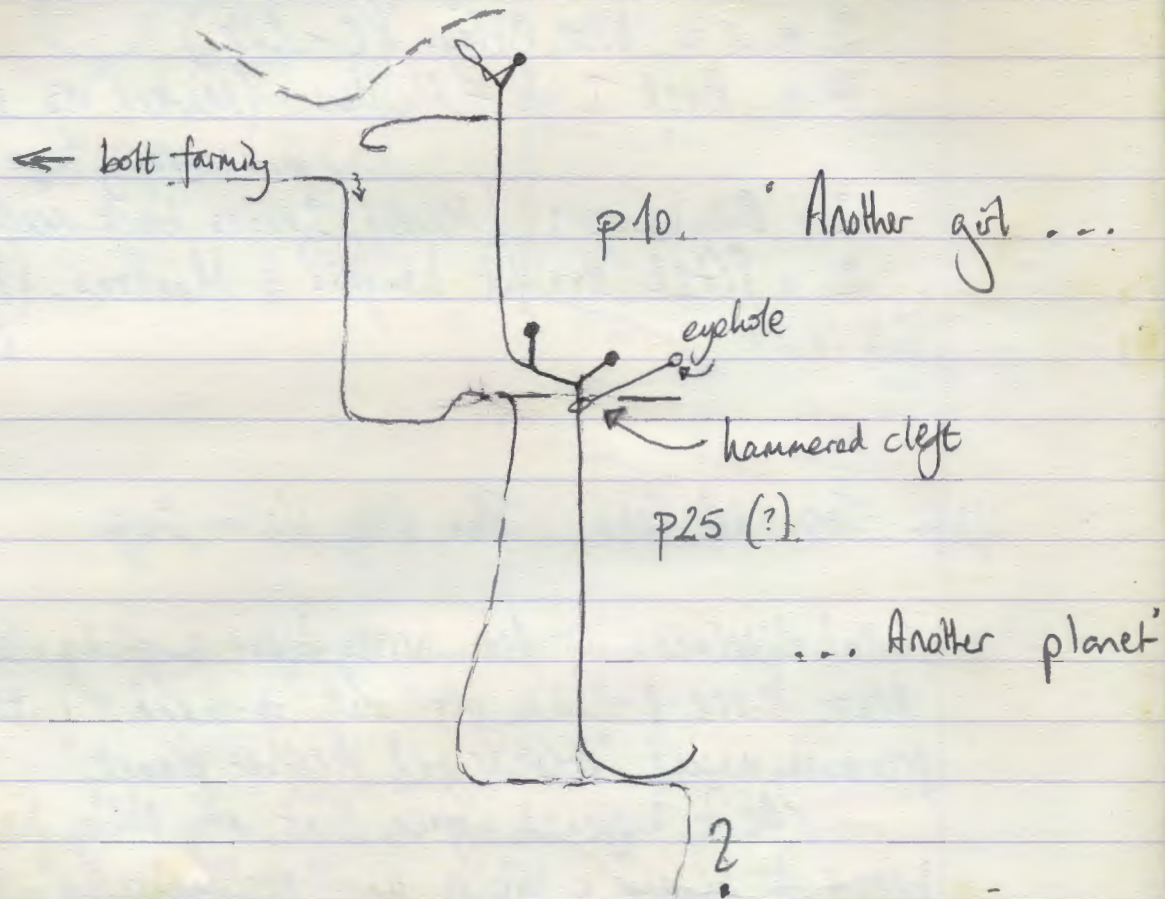 ← bolt farming
p10. ' Another girl ...
eyehole
hammered cleft
p25 (?)
... Another planet'
?